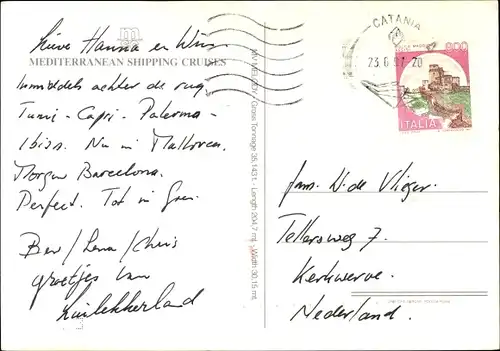 Lieve Hanna en Wim
MEDITERRANEAN SHIPPING CRUISES
Inmiddels achter de rug
Tunis - Capri - Palermo -
Ibiza. Nu in Mallorca.
Morgen Barcelona.
Perfect. Tot in
Ben / Lena / Chris
groetjes van
Luilekkerland
Gross Tonnage 35.143 t. - Length 204,7 mt. - Width 30,15 mt.
CATANIA
23.6.97 20
800
ITALIA
fam. W. de Vlieger.
Tellersweg 7.
Kerkwerve.
Nederland.